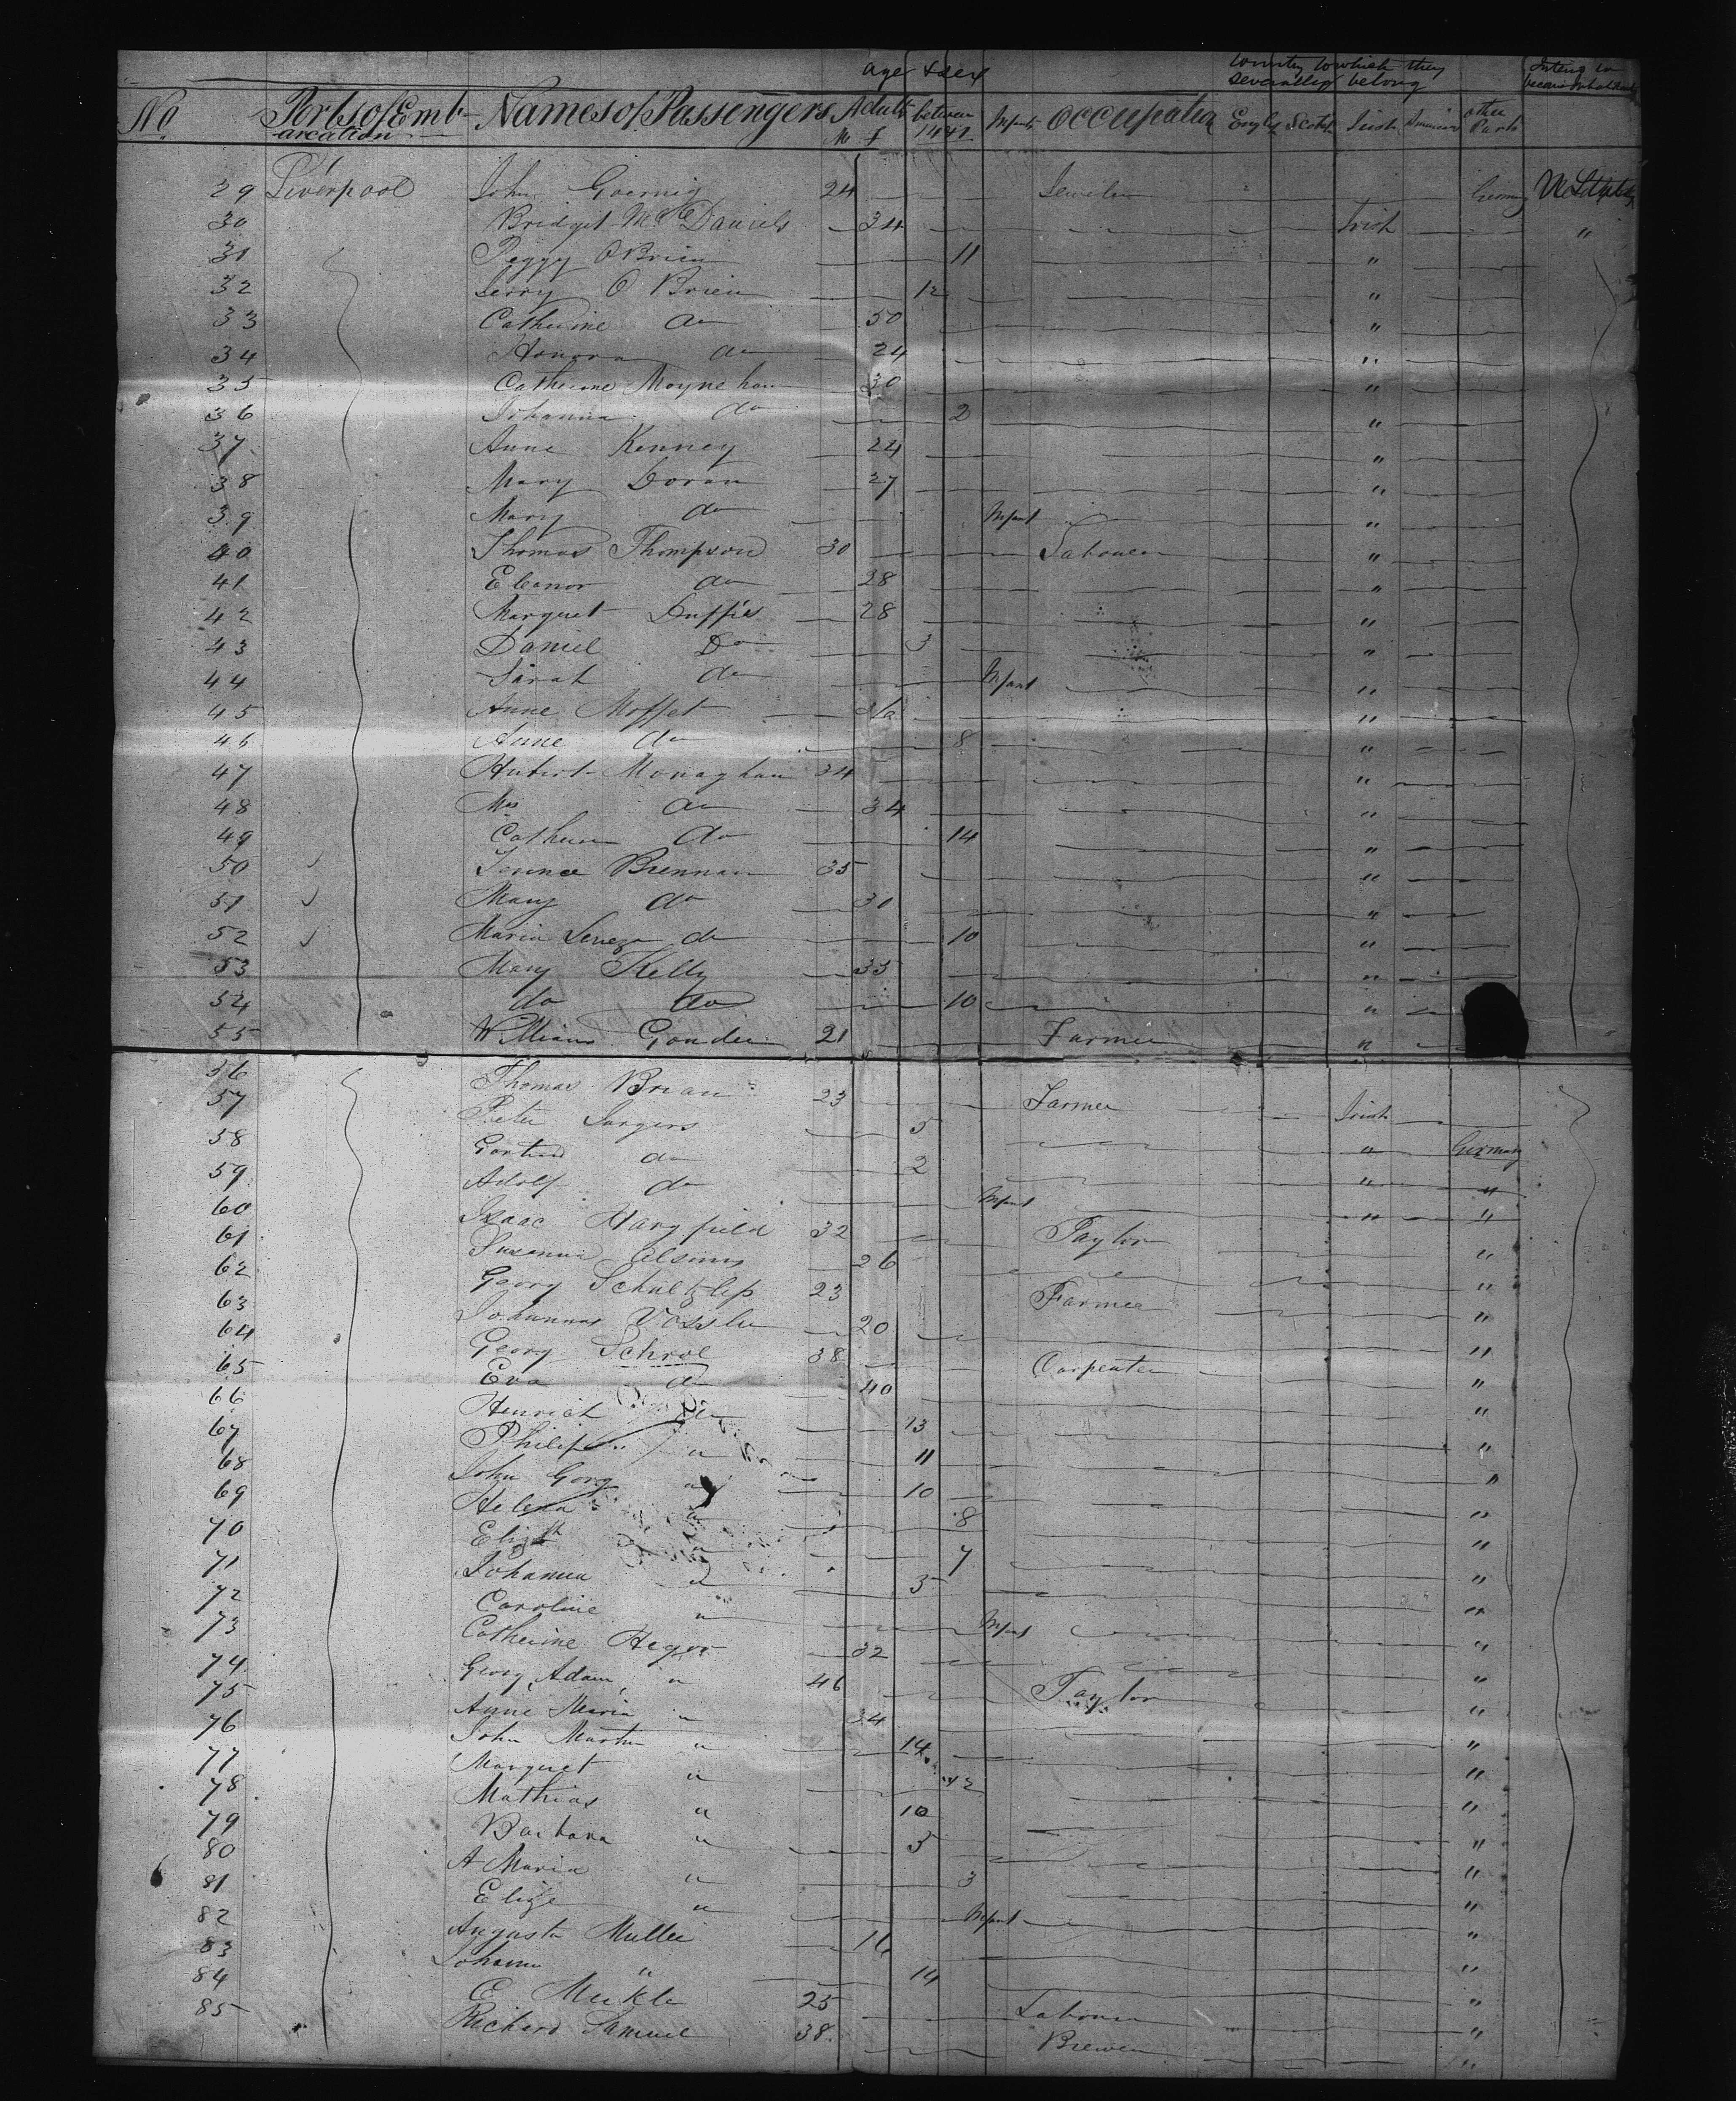 age & sex Country to which they severally belong Intend to
No Ports of Embarcation Names of Passengers Adults M F between 14 & 1 Infants Occupation English Scotch Irish American other Parts
29 Liverpool John Goernig 24 Germany
30 Bridget McDaniels 34 Irish "
31 Peggy OBrien 11 "
32 Jerry O Brien 12 "
33 Catherine do 50 "
34 Honora do 24 "
35 Catherine Moynehan 30 "
36 Johanna do 2 "
37 Anne Kenney 24 "
38 Mary Doran 27 "
39 Mary do Infant "
40 Thomas Thompson 30 Labourer "
41 Eleanor do 28 "
42 Marguet Duffie 28 "
43 Daniel Do 3 "
44 Sarah do Infant "
45 Anne Moffet "
46 Anne do 8 "
47 Hubert Monaghan 34 "
48 Mrs do 34 "
49 Catherin do 14 "
50 Terence Brennan 35 "
51 Mary do 30 "
52 Maria do 10 "
53 Mary Kelly 35 "
54 do do 10 "
55 William Gondee 21 Farmer "
56 Thomas Brian 23 Farmer Irish
57 Peter Jurgers 5 " Germany
58 do 2 " "
59 Adolf do Infant " "
60 Isaac Hargfield 32 Taylor "
61 Susanna 26 "
62 Georg 23 Farmer "
63 Johannas Vossler 20 "
64 Georg Schroe 38 Carpenter "
65 Eva do 40 "
66 Henrich do 13 "
67 Philip " 11 "
68 John Gorg " 10 "
69 Helena " 8 "
70 Elizth " 7 "
71 Johanna " 5 "
72 Caroline " Infant "
73 Catherine Heger 32 "
74 Georg Adam " 46 Taylor "
75 Anne Maria " 34 "
76 John Martin " 14 "
77 Marguet " "
78 Mathias " 10 "
79 Barbara " 5 "
80 A Maria " 3 "
81 Elize " Infant "
82 Augusta Muller 16 "
83 Johann " 14 "
84 E Meikle 25 Labourer "
85 Richard Samuel 38 Brewer "